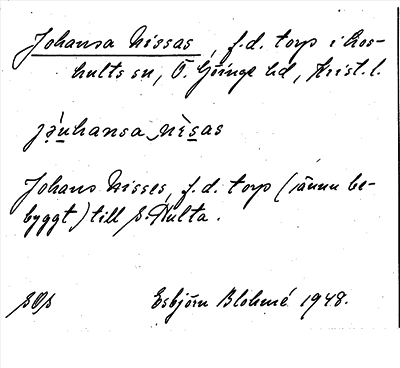 Johansa Nissas, f.d. torp i Los-
hults sn, Ö. Göinge hd, Krist. l.
jȯu̱hansa nìs̱as
Johans Nisses, f.d. torp (ännu be-
byggt) till S. Hulta.
Esbjörn Blohmé 1948.